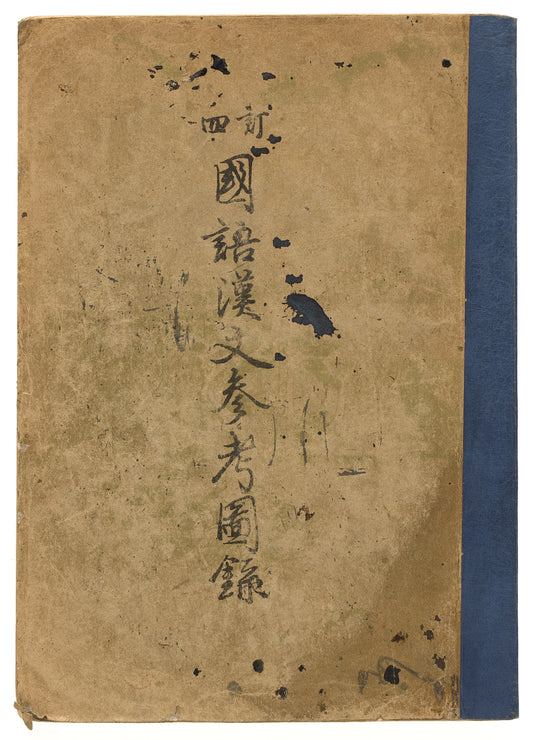 四訂
國語漢文參考圖錄